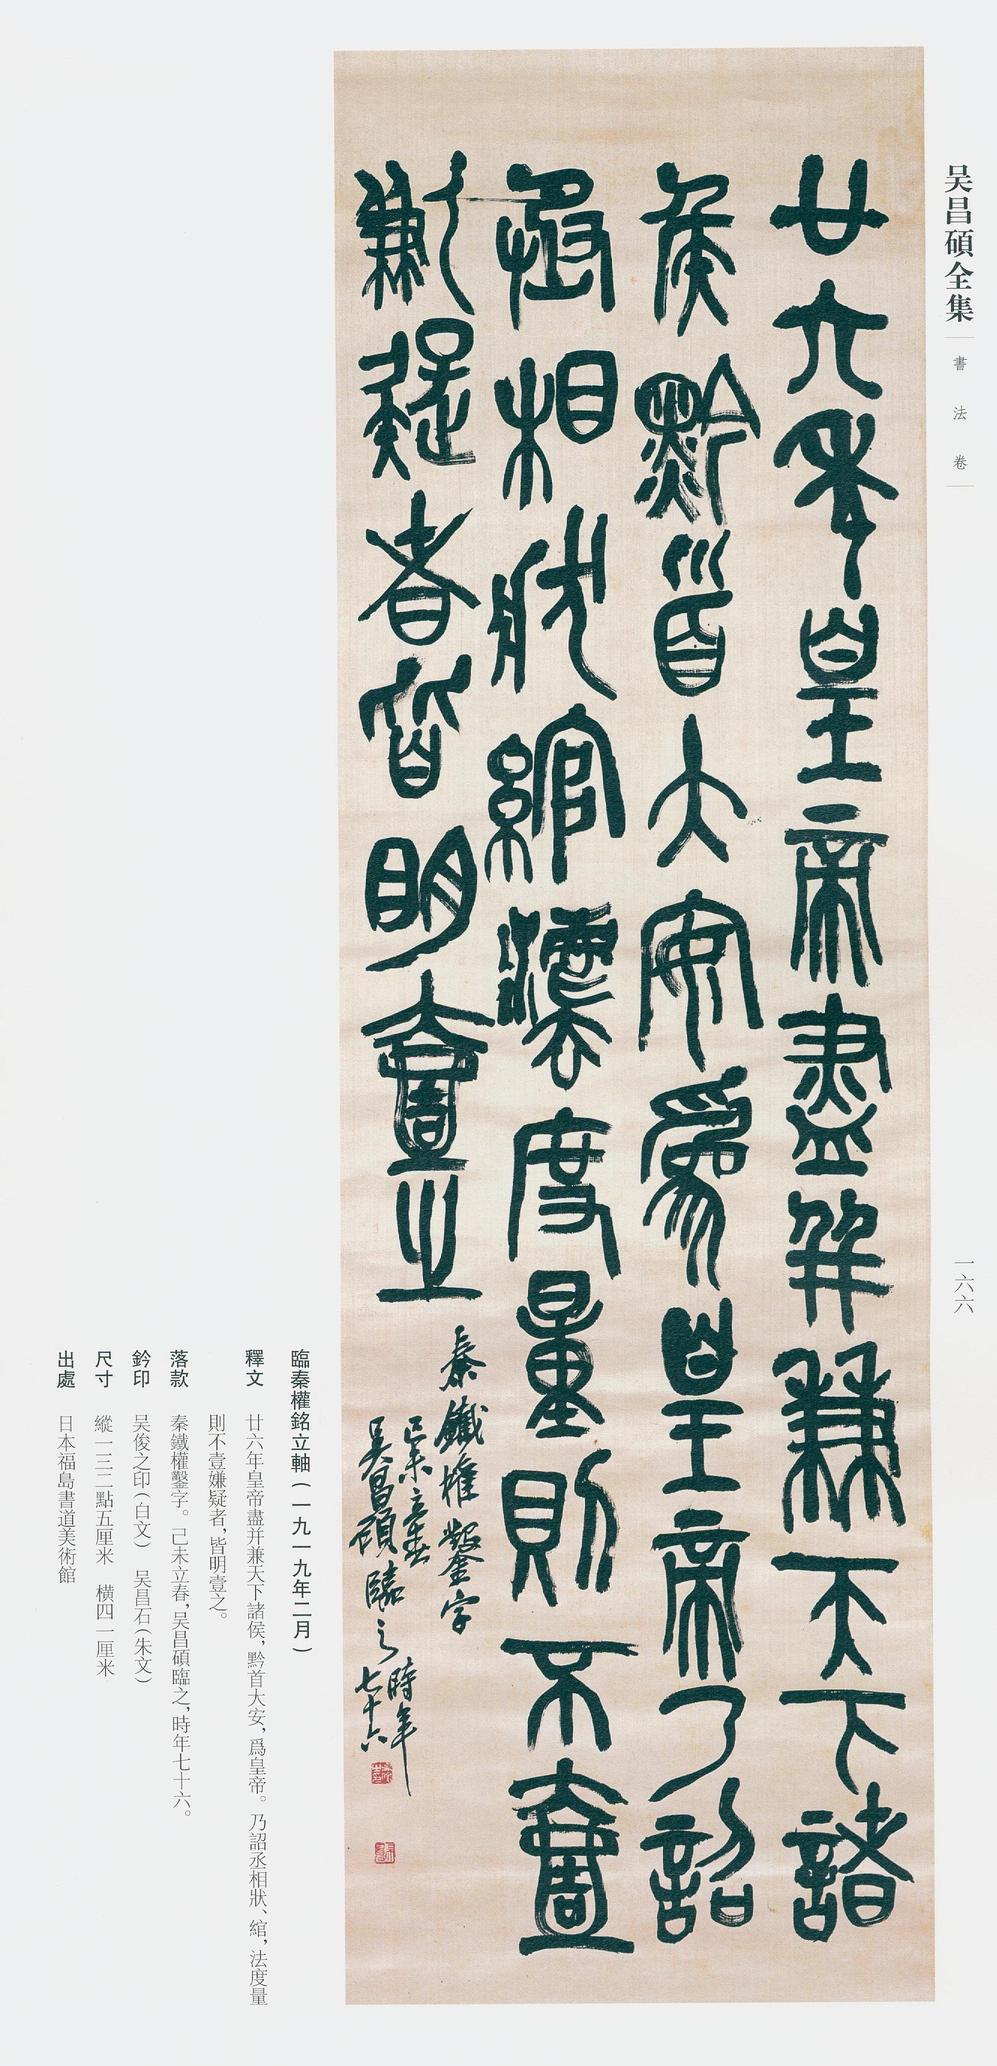 吴昌碩全集
書法卷
一六六
廿六年皇帝盡并兼天下諸
侯黔首大安爲皇帝乃詔
丞相狀綰灋度量則不壹
歉疑者皆明壹之
秦鐵權鑿字
己未立春
吴昌碩臨之時年
七十六
臨秦權銘立軸(一九一九年二月)
釋文 廿六年皇帝盡并兼天下諸侯,黔首大安,爲皇帝。乃詔丞相狀、綰,法度量
則不壹嫌疑者,皆明壹之。
落款 秦鐵權鑿字。己未立春,吴昌碩臨之,時年七十六。
鈐印 吴俊之印(白文) 吴昌石(朱文)
尺寸 縱一三二點五厘米 橫四一厘米
出處 日本福島書道美術館